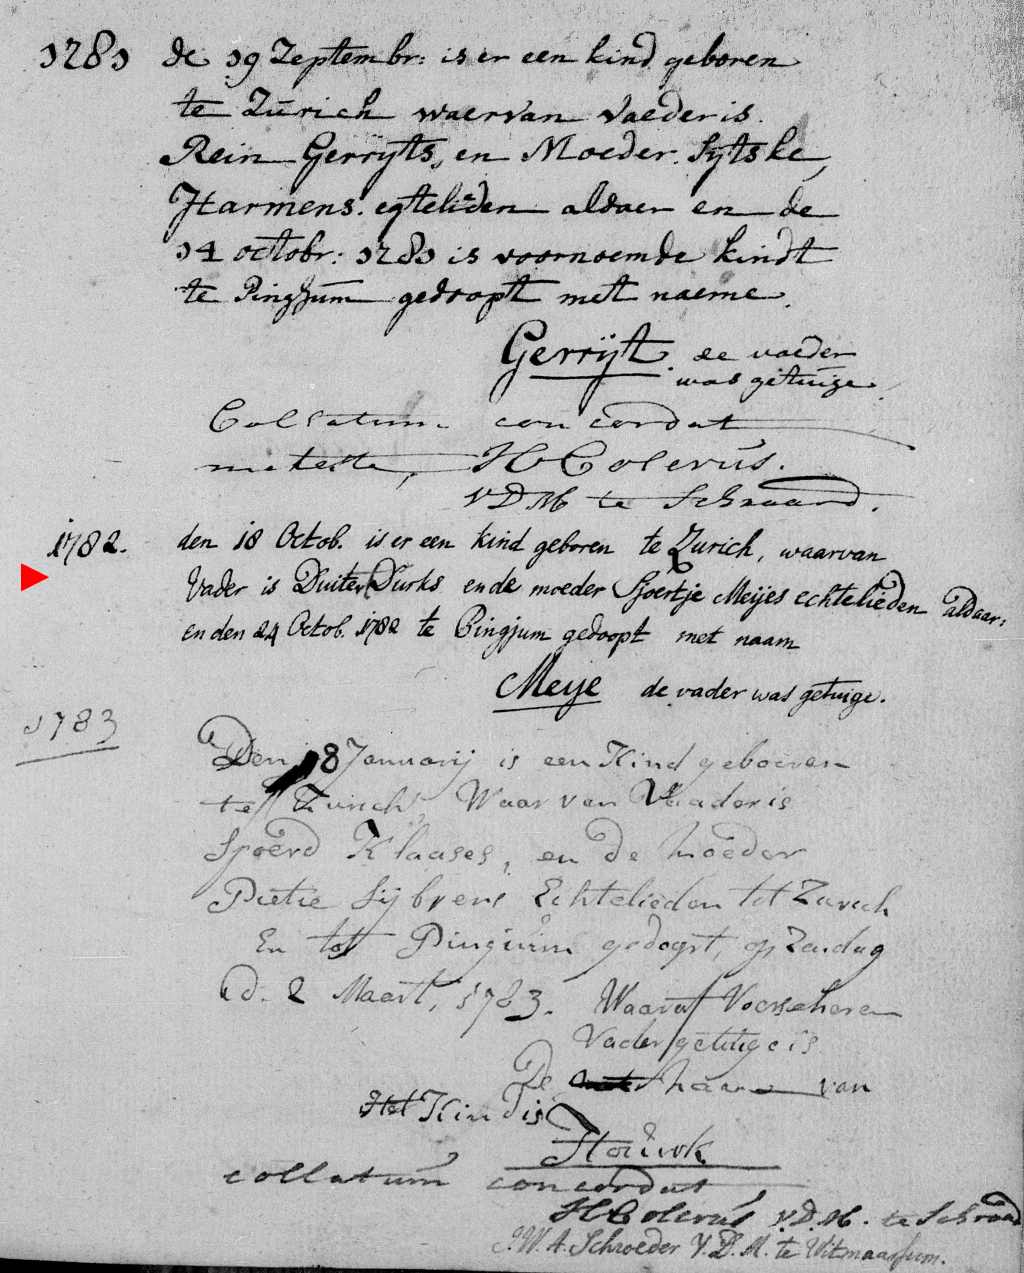 1781 de 19 Zeptembr: is er een kind geboren
te Zurich waervan Vaeder is
Rein Gerryts, en Moeder. Sytske
Harmens. egteliden aldaer en de
14 octobr: 1781 is voornoemde kindt
te Pingjum gedoopt met naeme
Gerrÿt. de vaeder
was getuige.
Collatum concordat
me teste, H Colerus.
V D M te Schraard.
1782. den 18 Octob. is er een kind geboren te Zurich, waarvan
Vader is Duiter Durks en de moeder Sjoertje Meijes echtelieden aldaar:
en den 24 Octob. 1782 te Pingjum gedoopt met naam
Meije de vader was getuige.
1783 Den 18 Januarij is een Kind geboeren
te Zurich, Waar van Vaader is
Sjoerd Klaases, en de moeder
Pietie Sijbrens Echtelieden tot Zurich
En tot Pingium gedoopt, op Zondag
d. 2 Maart, 1783. Waarvan
Vader getuige is
De naam van
Het Kind is
Houwk
collatum concordat
H Colerus V.D.M. te Schraard
J.W.A. Schroeder V.D.M. te Witmaarsum.